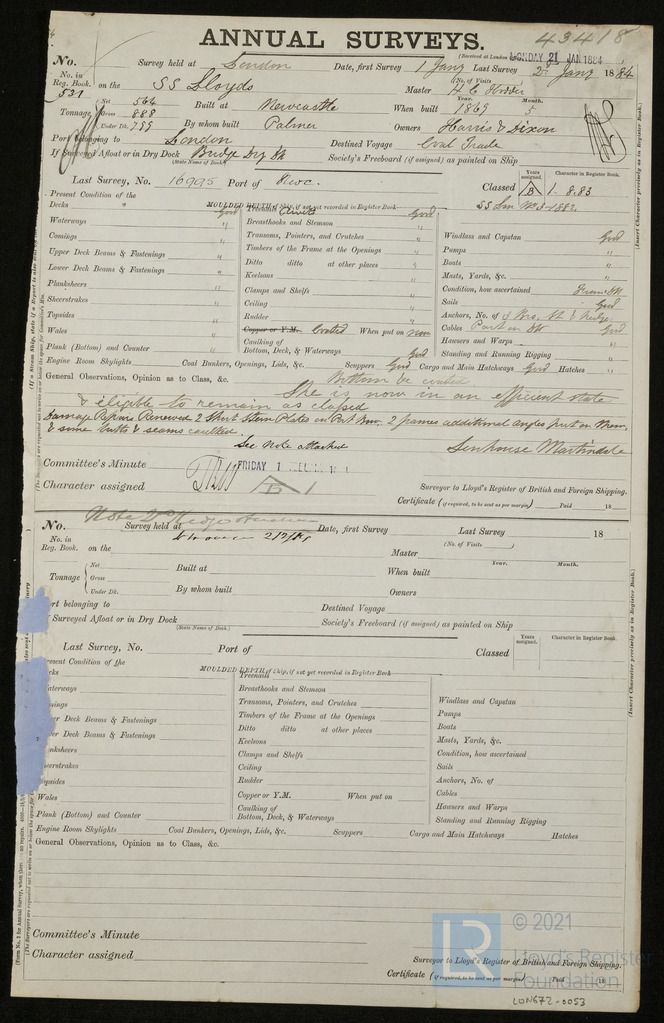 ANNUAL SURVEYS.
43418
(Received at London MONDAY 21 JAN 1884
No. Survey held at London Date, first Survey 1 Jany Last Survey 2 Jany 1884
No. in Reg. Book. 531 on the SS Lloyds Master H C Hodder
(No. of Visits
Tonnage Net 564 Gross 888 Under Dk. 799 Built at Newcastle When built Year. 1869 Month. 5
By whom built Palmer Owners Harris & Dixon
Port belonging to London Destined Voyage Coal Trade
If Surveyed Afloat or in Dry Dock Bridge Dry Dk Society's Freeboard (if assigned) as painted on Ship
(State Name of Dock.)
Last Survey, No. 16995 Port of Nwc. Classed Years assigned. A B Character in Register Book. 1. 8.83
Present Condition of the MOULDED DEPTH of Ship, if not yet recorded in Register Book SS Lon No.3-1882.
Decks Good Treenails Rivets Good
Waterways " Breasthooks and Stemson " Windlass and Capstan Good
Comings " Transoms, Pointers, and Crutches " Pumps "
Upper Deck Beams & Fastenings " Timbers of the Frame at the Openings " Boats "
Lower Deck Beams & Fastenings " Ditto ditto at other places " Masts, Yards, &c. "
Planksheers " Keelsons " Condition, how ascertained From Dk
Sheerstrakes " Clamps and Shelfs " Sails Good
Topsides " Ceiling " Anchors, No. of
Wales " Rudder " Cables Part on Dk Good
Plank (Bottom) and Counter " Copper or Y.M. Coated When put on now Hawsers and Warps "
Caulking of Bottom, Deck, & Waterways Good Standing and Running Rigging "
Engine Room Skylights " Coal Bunkers, Openings, Lids, &c. " Scuppers Good Cargo and Main Hatchways Good Hatches "
General Observations, Opinion as to Class, &c. Bottom be coated
She is now in an efficient state
& eligible to remain as classed
Damage Repairs Renewed 2 Short Stem Plates on Port Bow, 2 frames additional angles put on them,
& some butts & seams caulked
See Note attached Senhouse Martindale
Committee's Minute FRIDAY 1
Character assigned A B 1
Surveyor to Lloyd's Register of British and Foreign Shipping.
Certificate (if required, to be sent as per margin) Paid 18
No. Survey held at Date, first Survey Last Survey 18
No. in Reg. Book. on the Master
(No. of Visits )
Tonnage Net Gross Under Dk. Built at When built Year. Month.
By whom built Owners
rt belonging to Destined Voyage
f Surveyed Afloat or in Dry Dock Society's Freeboard (if assigned) as painted on Ship
(State Name of Dock.)
Last Survey, No. Port of Classed Years assigned. Character in Register Book.
resent Condition of the MOULDED DEPTH of Ship, if not yet recorded in Register Book
cks Treenails
aterways Breasthooks and Stemson Windlass and Capstan
ings Transoms, Pointers, and Crutches Pumps
er Deck Beams & Fastenings Timbers of the Frame at the Openings Boats
er Deck Beams & Fastenings Ditto ditto at other places Masts, Yards, &c.
nksheers Keelsons Condition, how ascertained
eerstrakes Clamps and Shelfs Sails
opsides Ceiling Anchors, No. of
Wales Rudder Cables
Plank (Bottom) and Counter Copper or Y.M. When put on Hawsers and Warps
Caulking of Bottom, Deck, & Waterways Standing and Running Rigging
Engine Room Skylights Coal Bunkers, Openings, Lids, &c. Scuppers Cargo and Main Hatchways Hatches
General Observations, Opinion as to Class, &c.
Committee's Minute
Character assigned
Surveyor to Lloyd's Register of British and Foreign Shipping.
Certificate (if required, to be sent as per margin) Paid 18
(Insert Character precisely as in Register Book.)
(Insert Character precisely as in Register Book.)
LR © 2021
Lloyd's Register
Foundation
LON672-0053